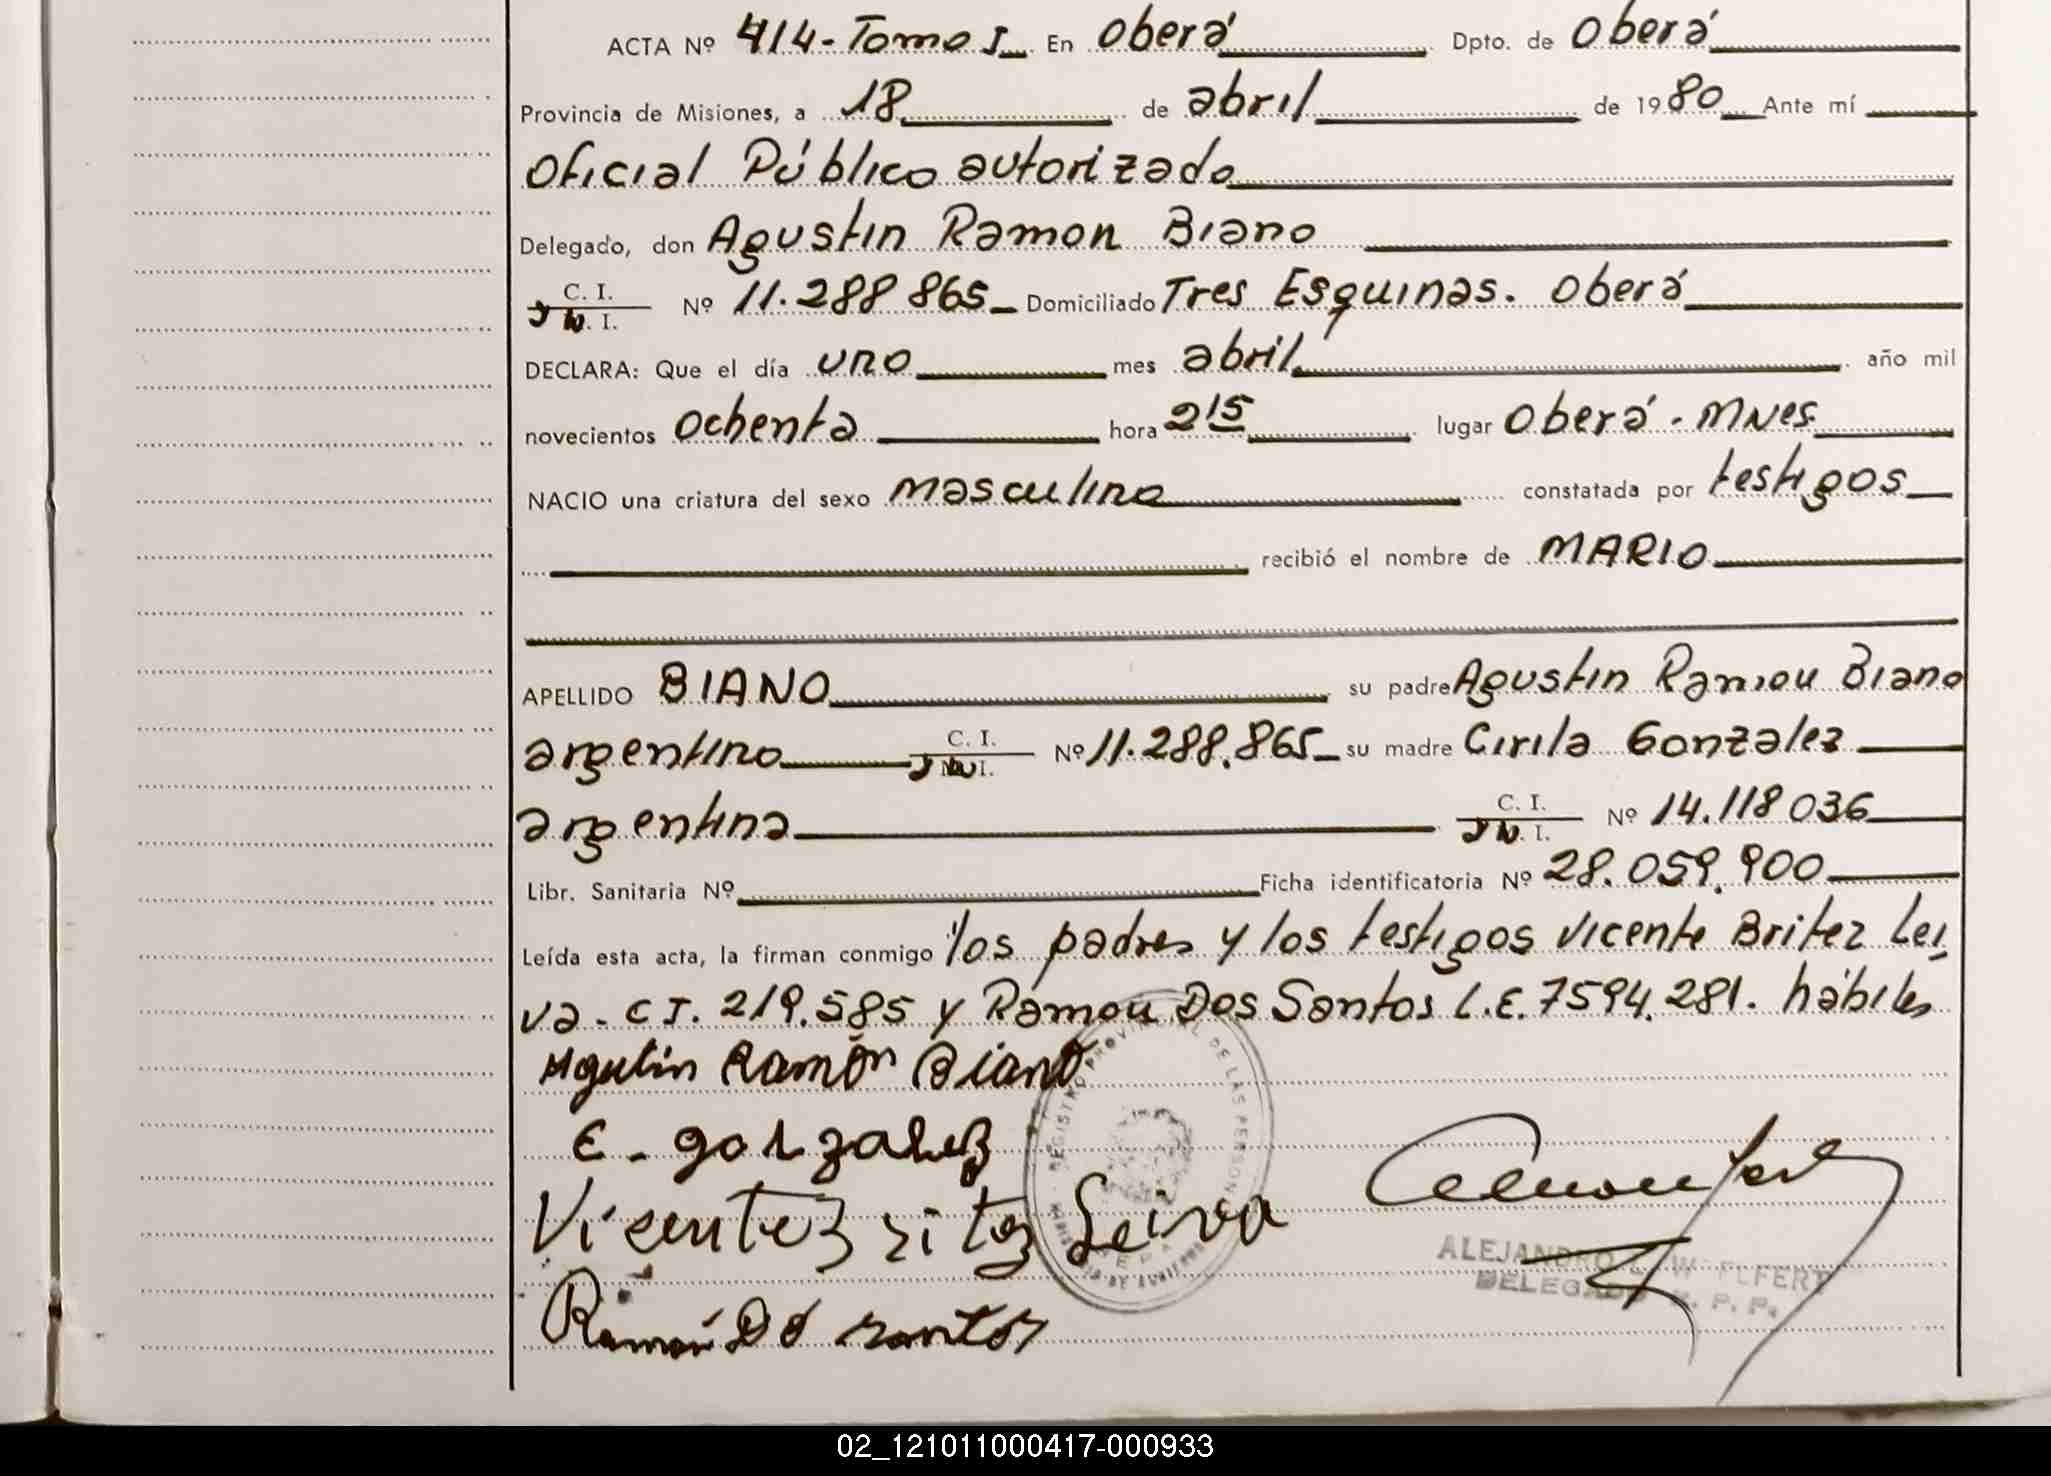 ACTA Nº 414-Tomo I En Oberá Dpto. de Oberá
Provincia de Misiones, a 18 de abril de 1980 Ante mí
Oficial Público autorizado
Delegado, don Agustin Ramon Biano
C. I.
N. I. Nº 11.288 865 Domiciliado Tres Esquinas. Oberá
DECLARA: Que el día uno mes abril año mil
novecientos ochenta hora 2 15 lugar Oberá - Mnes
NACIO una criatura del sexo masculino constatada por testigos
recibió el nombre de MARIO
APELLIDO BIANO su padre Agustin Ramon Biano
argentino C. I. Nº 11.288.865 su madre Cirila Gonzalez
argentina C. I. Nº 14.118 036
Libr. Sanitaria Nº Ficha identificatoria Nº 28.059.900
Leída esta acta, la firman conmigo los padres y los testigos Vicente Britez Lei
va - C I. 219.585 y Ramon Dos Santos L.E. 7594.281. hábiles
Agutin Ramón Biano
C - gonzalez
Vicente Britez Leiva
Ramón Do santos
REGISTRO PROVINCIAL DE LAS PERSONAS
ALEJANDRO
DELEGADO R. P. P.
02_121011000417-000933